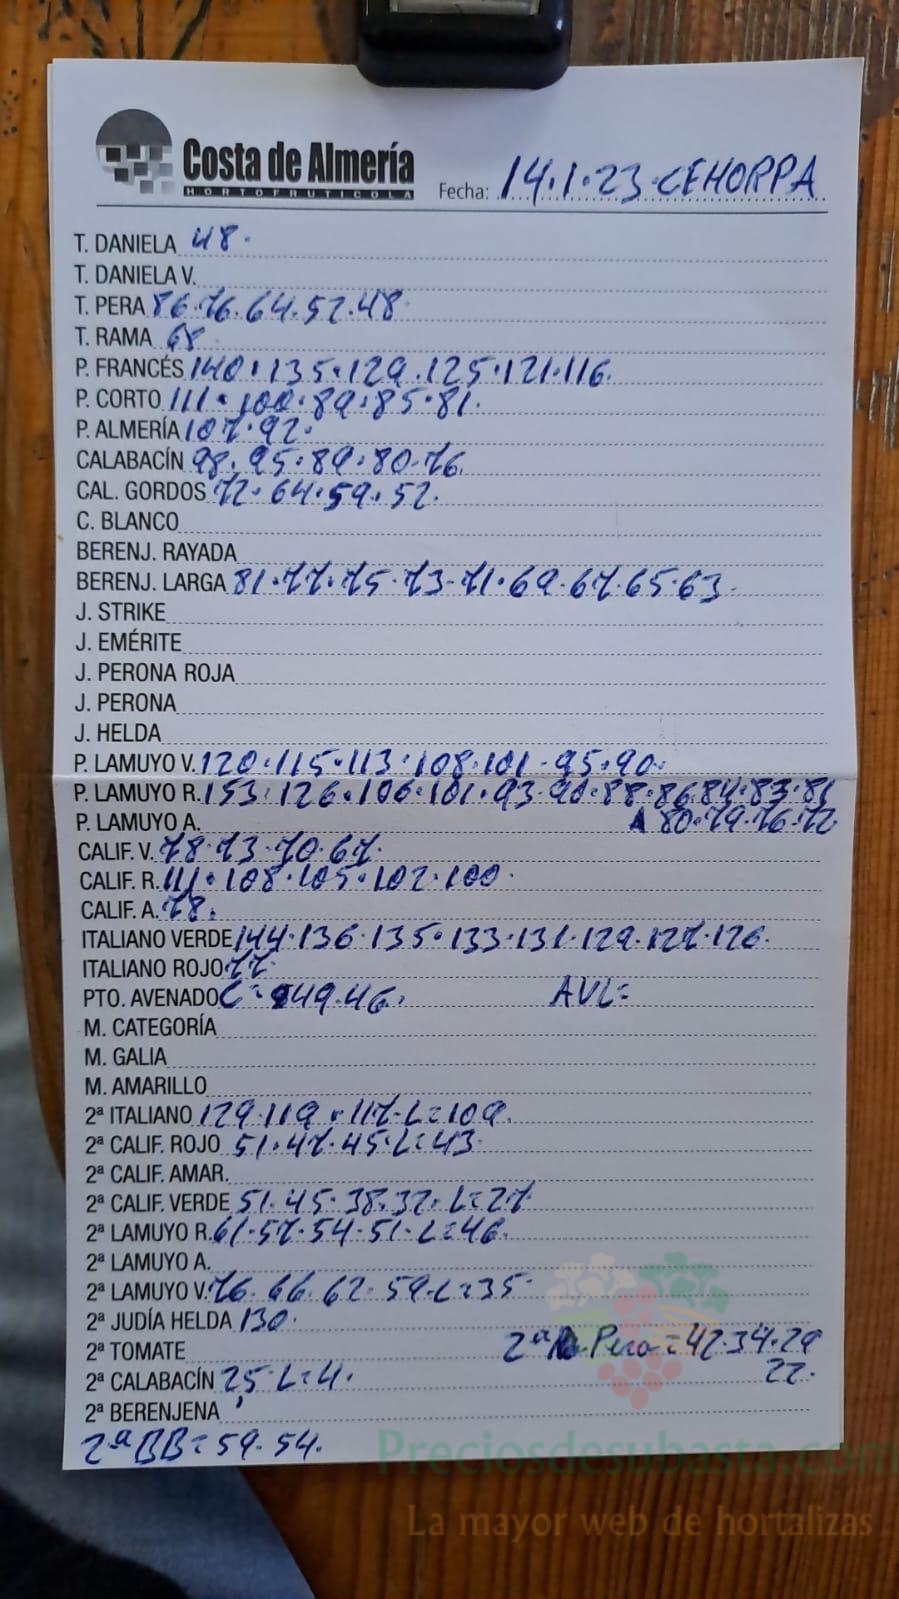 Costa de Almería
HORTOFRUTICOLA
Fecha: 14.1.23.CEHORPA
T. DANIELA 48.
T. DANIELA V.
T. PERA 86.76.64.52.48
T. RAMA 68
P. FRANCÉS 140.135.129.125.121.116.
P. CORTO 111.100.89.85.81.
P. ALMERÍA 107.92.
CALABACÍN 98.95.89.80.76.
CAL. GORDOS 72.64.59.52.
C. BLANCO
BERENJ. RAYADA
BERENJ. LARGA 81.77.75.73.71.69.67.65.63.
J. STRIKE
J. EMÉRITE
J. PERONA ROJA
J. PERONA
J. HELDA
P. LAMUYO V. 120.115.113.108.101.95.90.
P. LAMUYO R. 153.126.106.101.93.90.88.86.84.83.81
P. LAMUYO A. 80.79.76.72
CALIF. V. 78.73.70.67.
CALIF. R. 111.108.105.102.100.
CALIF. A. 78.
ITALIANO VERDE 144.136.135.133.131.129.127.126.
ITALIANO ROJO 77
PTO. AVENADO C= 49.46. AVL=
M. CATEGORÍA
M. GALIA
M. AMARILLO
2ª ITALIANO 129.119.117.L=109.
2ª CALIF. ROJO 51.47.45.L=43
2ª CALIF. AMAR.
2ª CALIF. VERDE 51.45.38.32.L=27
2ª LAMUYO R. 61.57.54.51.L=46.
2ª LAMUYO A.
2ª LAMUYO V. 76.66.62.59.L=35
2ª JUDÍA HELDA 130.
2ª TOMATE 2ª Pera=42.34.29
22.
2ª CALABACÍN 25.L=4.
2ª BERENJENA
2ª BB=59.54.
Preciosdesubasta.com
La mayor web de hortalizas